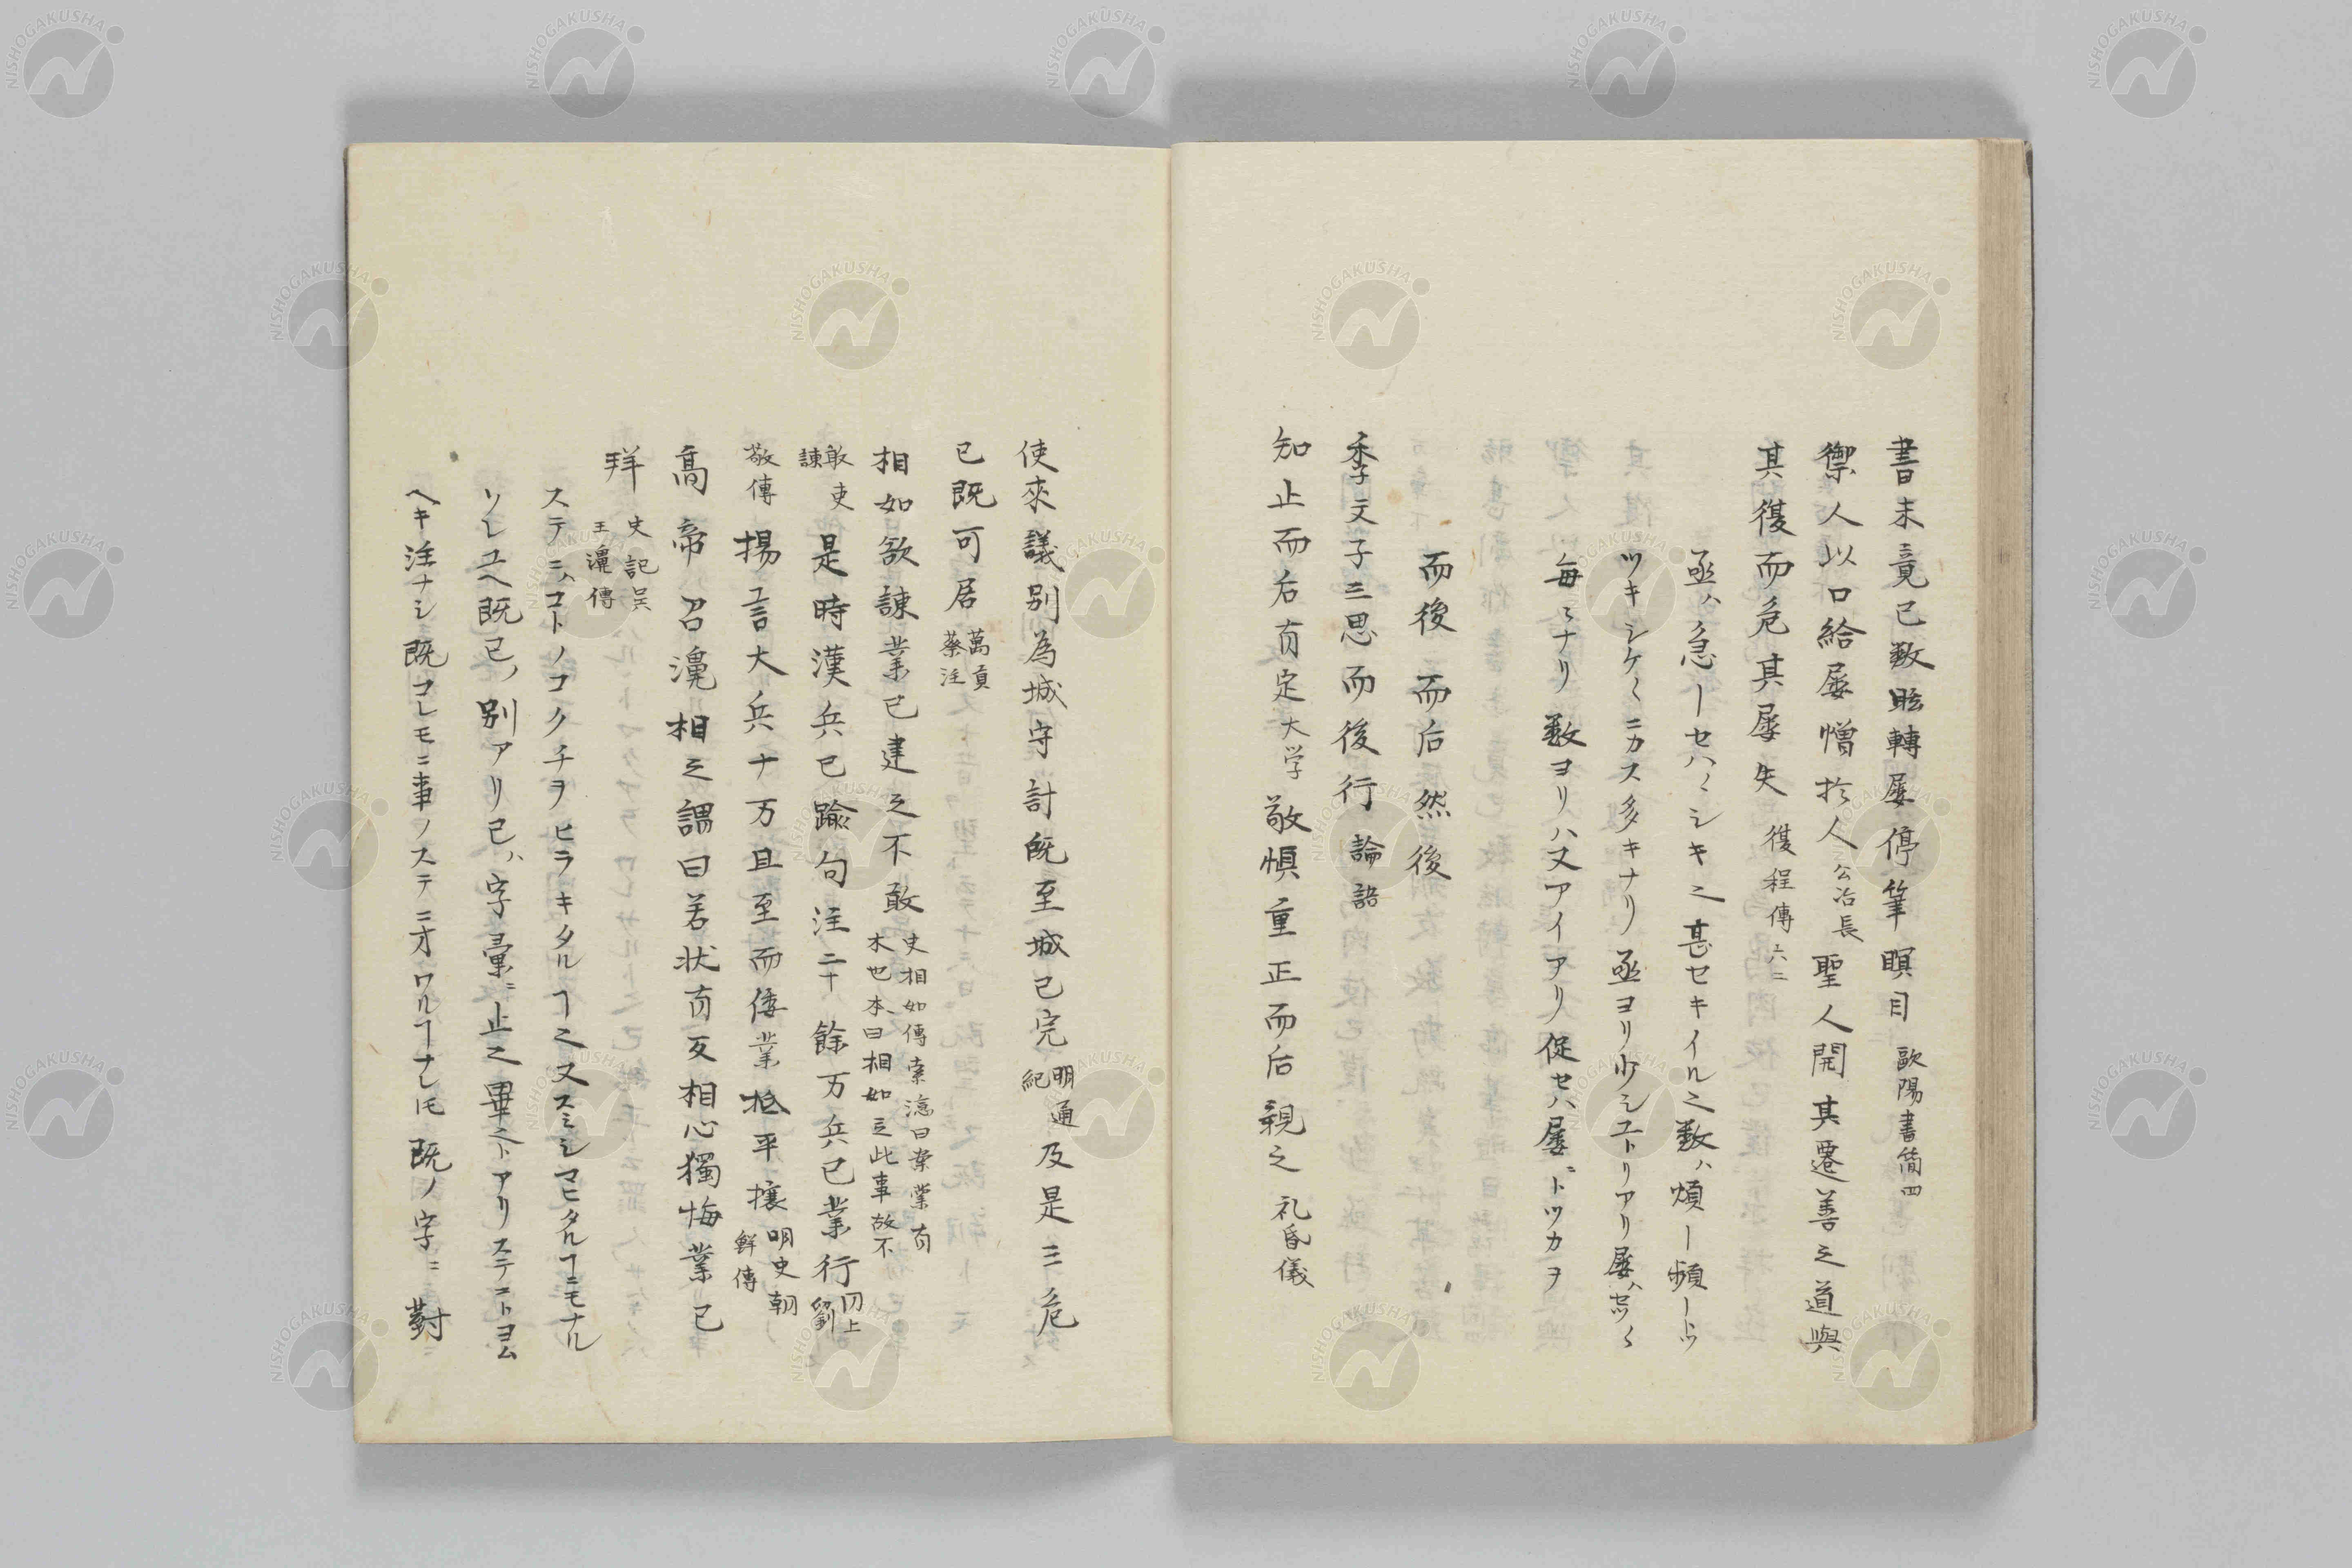 書未竟已数眩轉屡停筆瞑目 歐陽書簡四
禦人以口給屡憎於人 公冶長 聖人開其遷善之道與
其復而危其屡失 復程傳 六三
亟ハ急ーセハ〻シキ之甚セキイル之数ハ煩ー頻ーシ
ツキシケ〳〵ニカス多キナリ亟ヨリ少シユトリアリ屡ハセツ〳〵
毎〻ナリ数ヨリハ又アイアリ促セハ屡ニトツカヲ
而後 而后 然後
季文子三思而後行 論語
知止而后有定 大学 敬慎重正而后親之 礼昏儀
使來議別為城守計既至城已完 明通紀 及是三危
已既可居 禹貢蔡注
相如欲諫業已建之不敢 史相如傳索隠曰業業有本也本曰相如立此事故不
敢諫 吏 是時漢兵已踰句注二十餘万兵已業行 仝上劉
敬傳 揚言大兵十万且至而倭業抵平壤 明史朝鮮傳
高帝召濞相之謂曰若状有反相心獨悔業已
拜 史記呉王濞傳
ステニハコトノコクチヲヒラキタルヿ之又スミシマヒタルヿニモナル
ソレユヘ既已ノ別アリ已ハ字彙ニ止之畢之トアリステニトヨム
ヘキ注ナシ既コレモニ事ノステニオワルヿナレ𪜈既ノ字ニ對